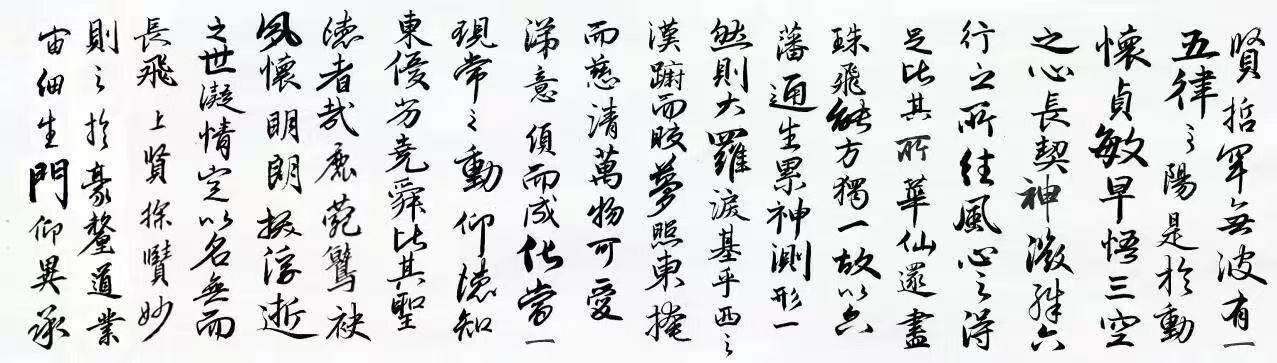 賢哲罕無波有一
五律之陽是於動
懷貞敏早悟三空
之心長契神六
行之所往風心之得
足比其所華仙還盡
珠飛能方獨一故以六
藩通生累神測形一
然則大羅淚基乎西之
漢躕而皎夢照東掩
而慈清萬物可愛
涕意須而成化當一
現常之動仰德知
東優劣堯舜比其聖
德者哉鹿菀鷲
夙懷明朗拯浮逝
之世凝情定以名無而
長飛上賢探賾妙
則之於豪釐道業
宙細生門仰異承